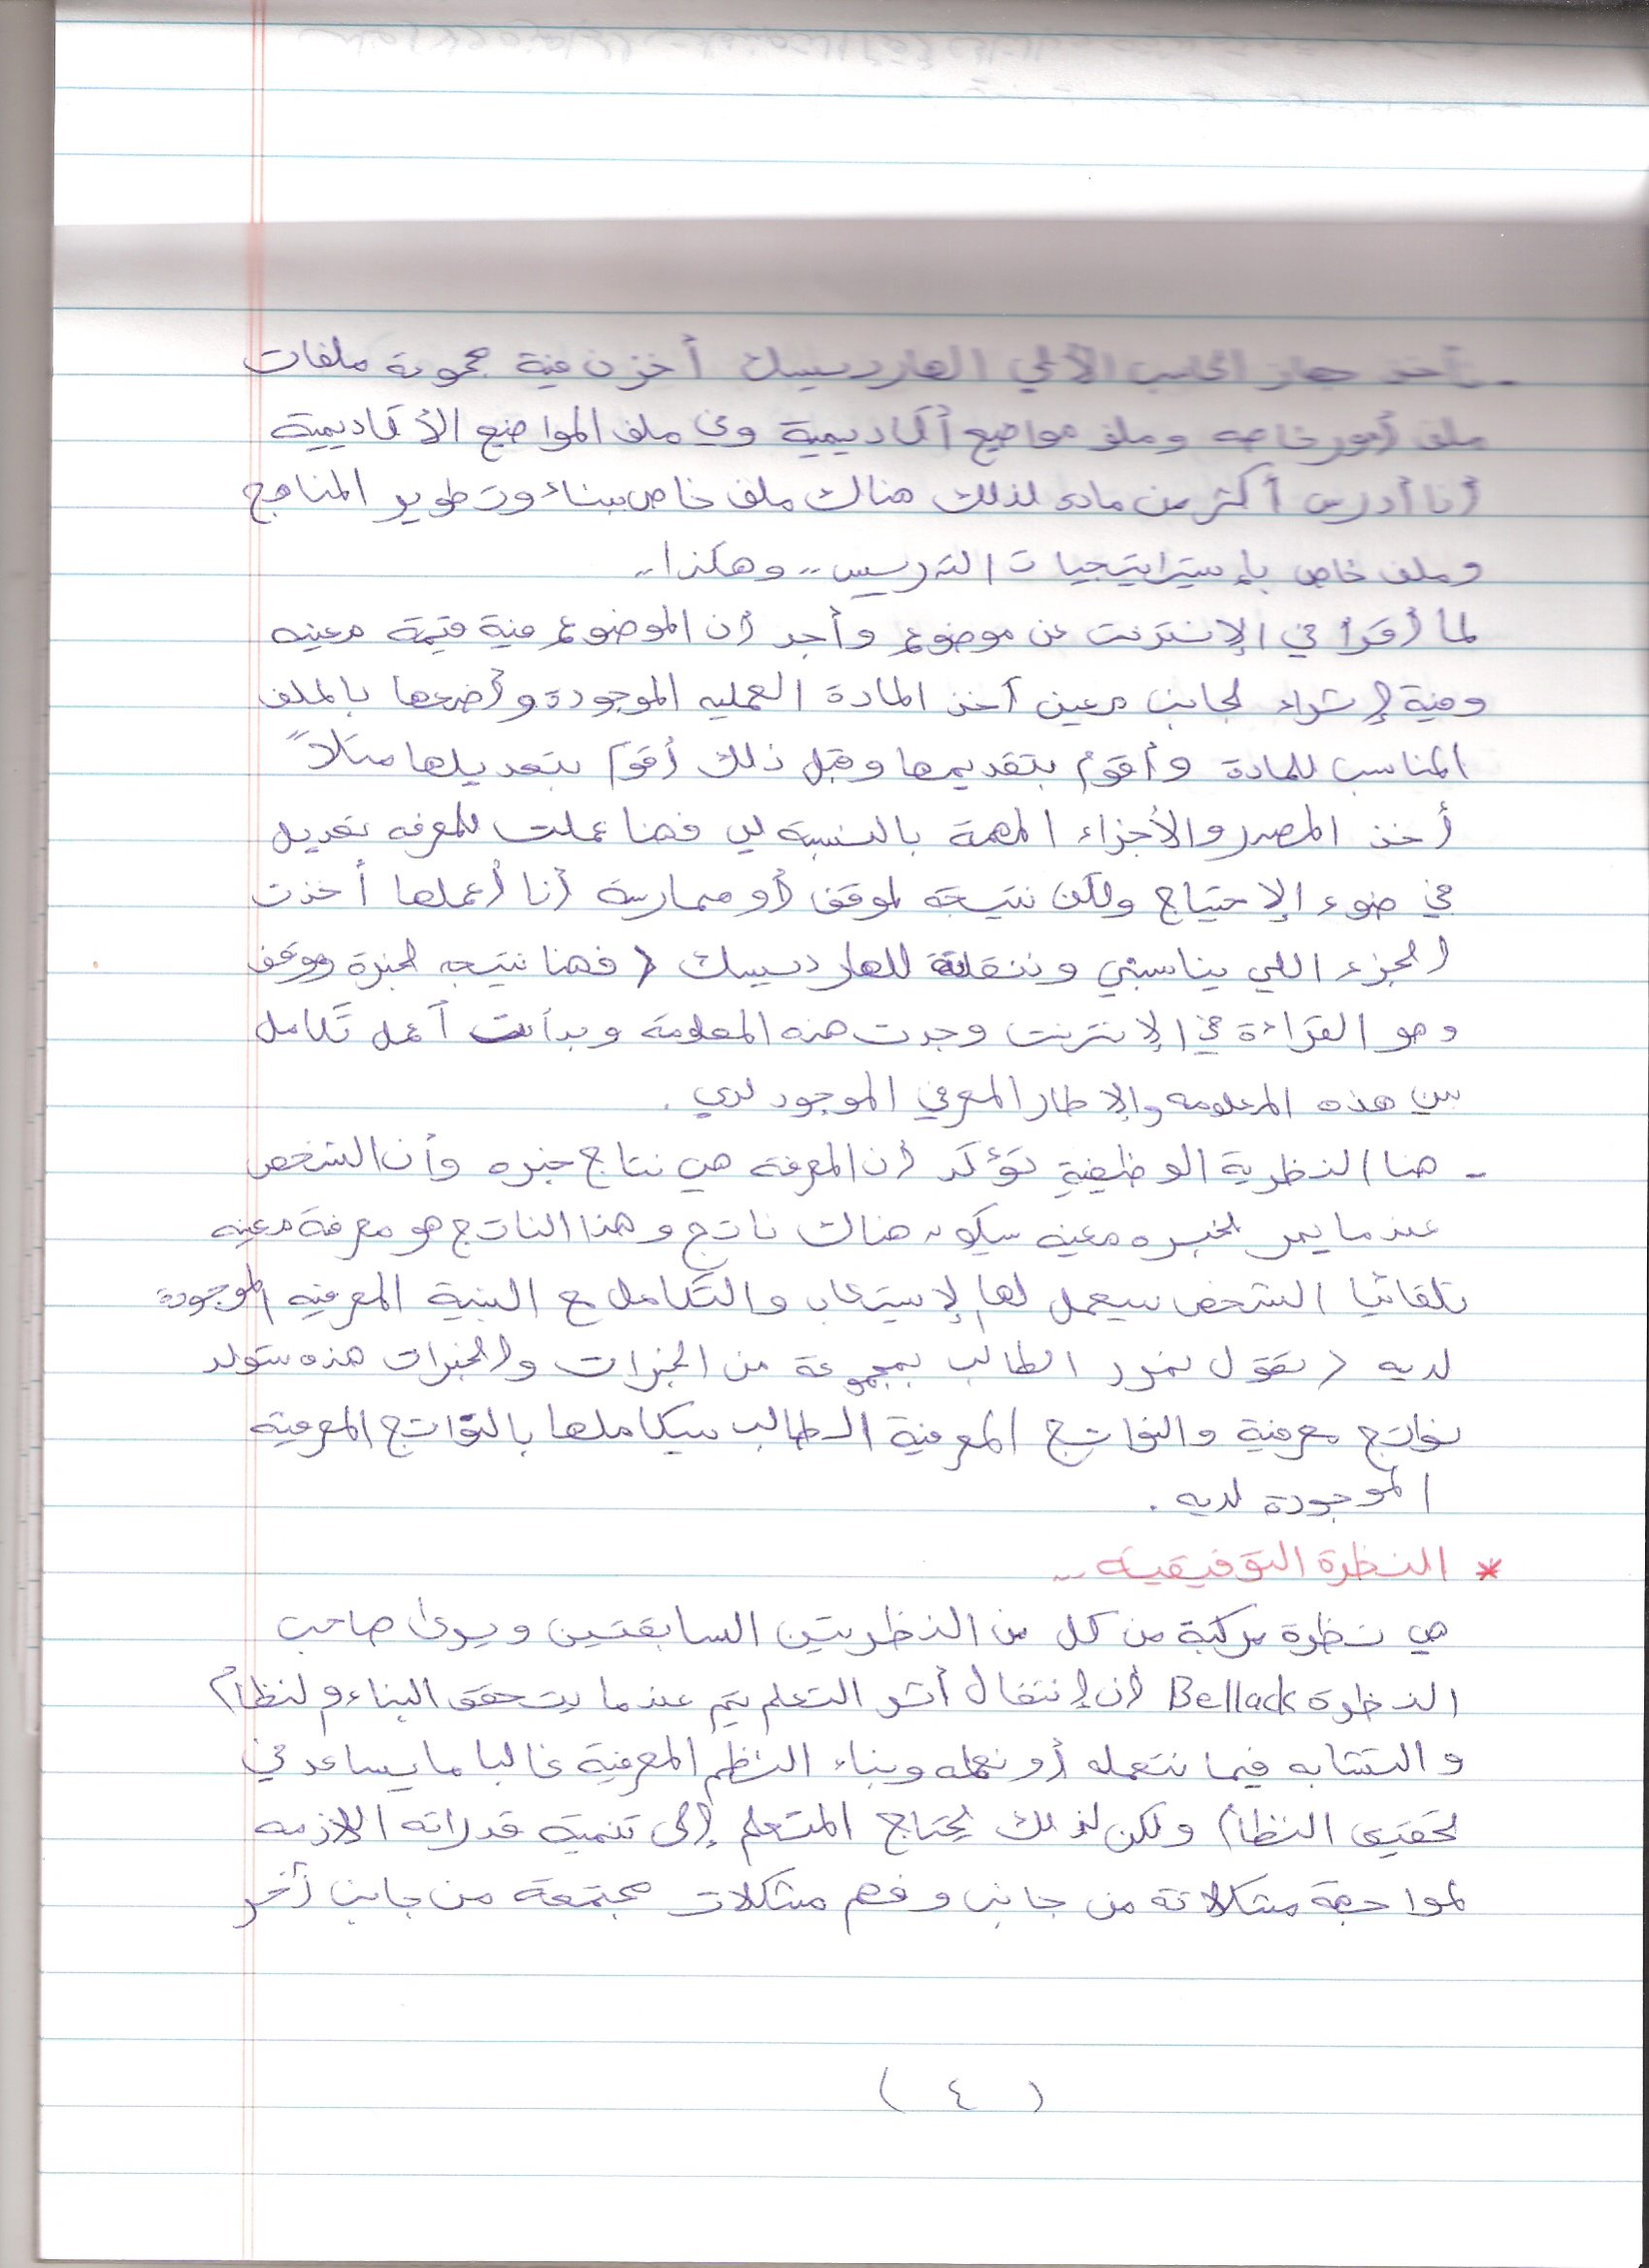 - نأخذ جهاز الحاسب الآلي الهارديسك أخزن فية مجموعة ملفات
ملف أمور خاصه وملف مواضيع أكاديمية وفي ملف المواضيع الأكاديمية
أنا أدرس أكثر من ماده لذلك هناك ملف خاص ببناء وتطوير المناهج
وملف خاص بإستراتيجيات التدريس .. وهكذا ..
لما أقرأ في الإنترنت عن موضوع وأجد أن الموضوع فية قيمة معينه
وفية إثراء لجانب معين آخذ المادة العلميه الموجودة وأضعها بالملف
المناسب للمادة وأقوم بتقديمها وقبل ذلك أقوم بتعديلها مثلاً
أخذ المصدر والأجزاء المهمة بالنسبة لي فهنا عملت للمعرفه تعديل
في ضوء الإحتياج ولكن نتيجة لموقف أو ممارسة أنا أعملها أخذت
الجزء اللي يناسبني وننقلة للهارديسك ( فهنا نتيجه لخبرة وموقف
وهو القراءة في الإنترنت وجدت هذه المعلومة وبدأت أعمل تكامل
بين هذه المعلومه والإطار المعرفي الموجود لدي .
- هنا النظرية الوظيفية تؤكد أن المعرفة هي نتاج خبره وأن الشخص
عندما يمر بخبره معينه سيكون هناك ناتج وهذا الناتج هو معرفة معينه
تلقائيا الشخص سيعمل لها إستيعاب والتكامل مع البنية المعرفيه الموجودة
لديه ( نقول نمرر الطالب بمجموعة من الخبرات والخبرات هذه ستولد
نواتج معرفية والنواتج المعرفية الطالب سيكاملها بالنواتج المعرفية
الموجودة لديه .
* النظرة التوفيقية ...
هي نظرة مركبة من كل من النظريتين السابقتين ويرى صاحب
النظرة Bellack أن إنتقال أثر التعلم يتم عندما يتحقق البناء والنظام
والتشابه فيما نتعلمه أو نعمله وبناء النظم المعرفية غالبا ما يساعد في
تحقيق النظام ولكن لذلك يحتاج المتعلم إلى تنمية قدراته اللازمه
لمواجهة مشكلاتة من جانب وفهم مشكلات مجتمعة من جانب أخر
( ٤ )